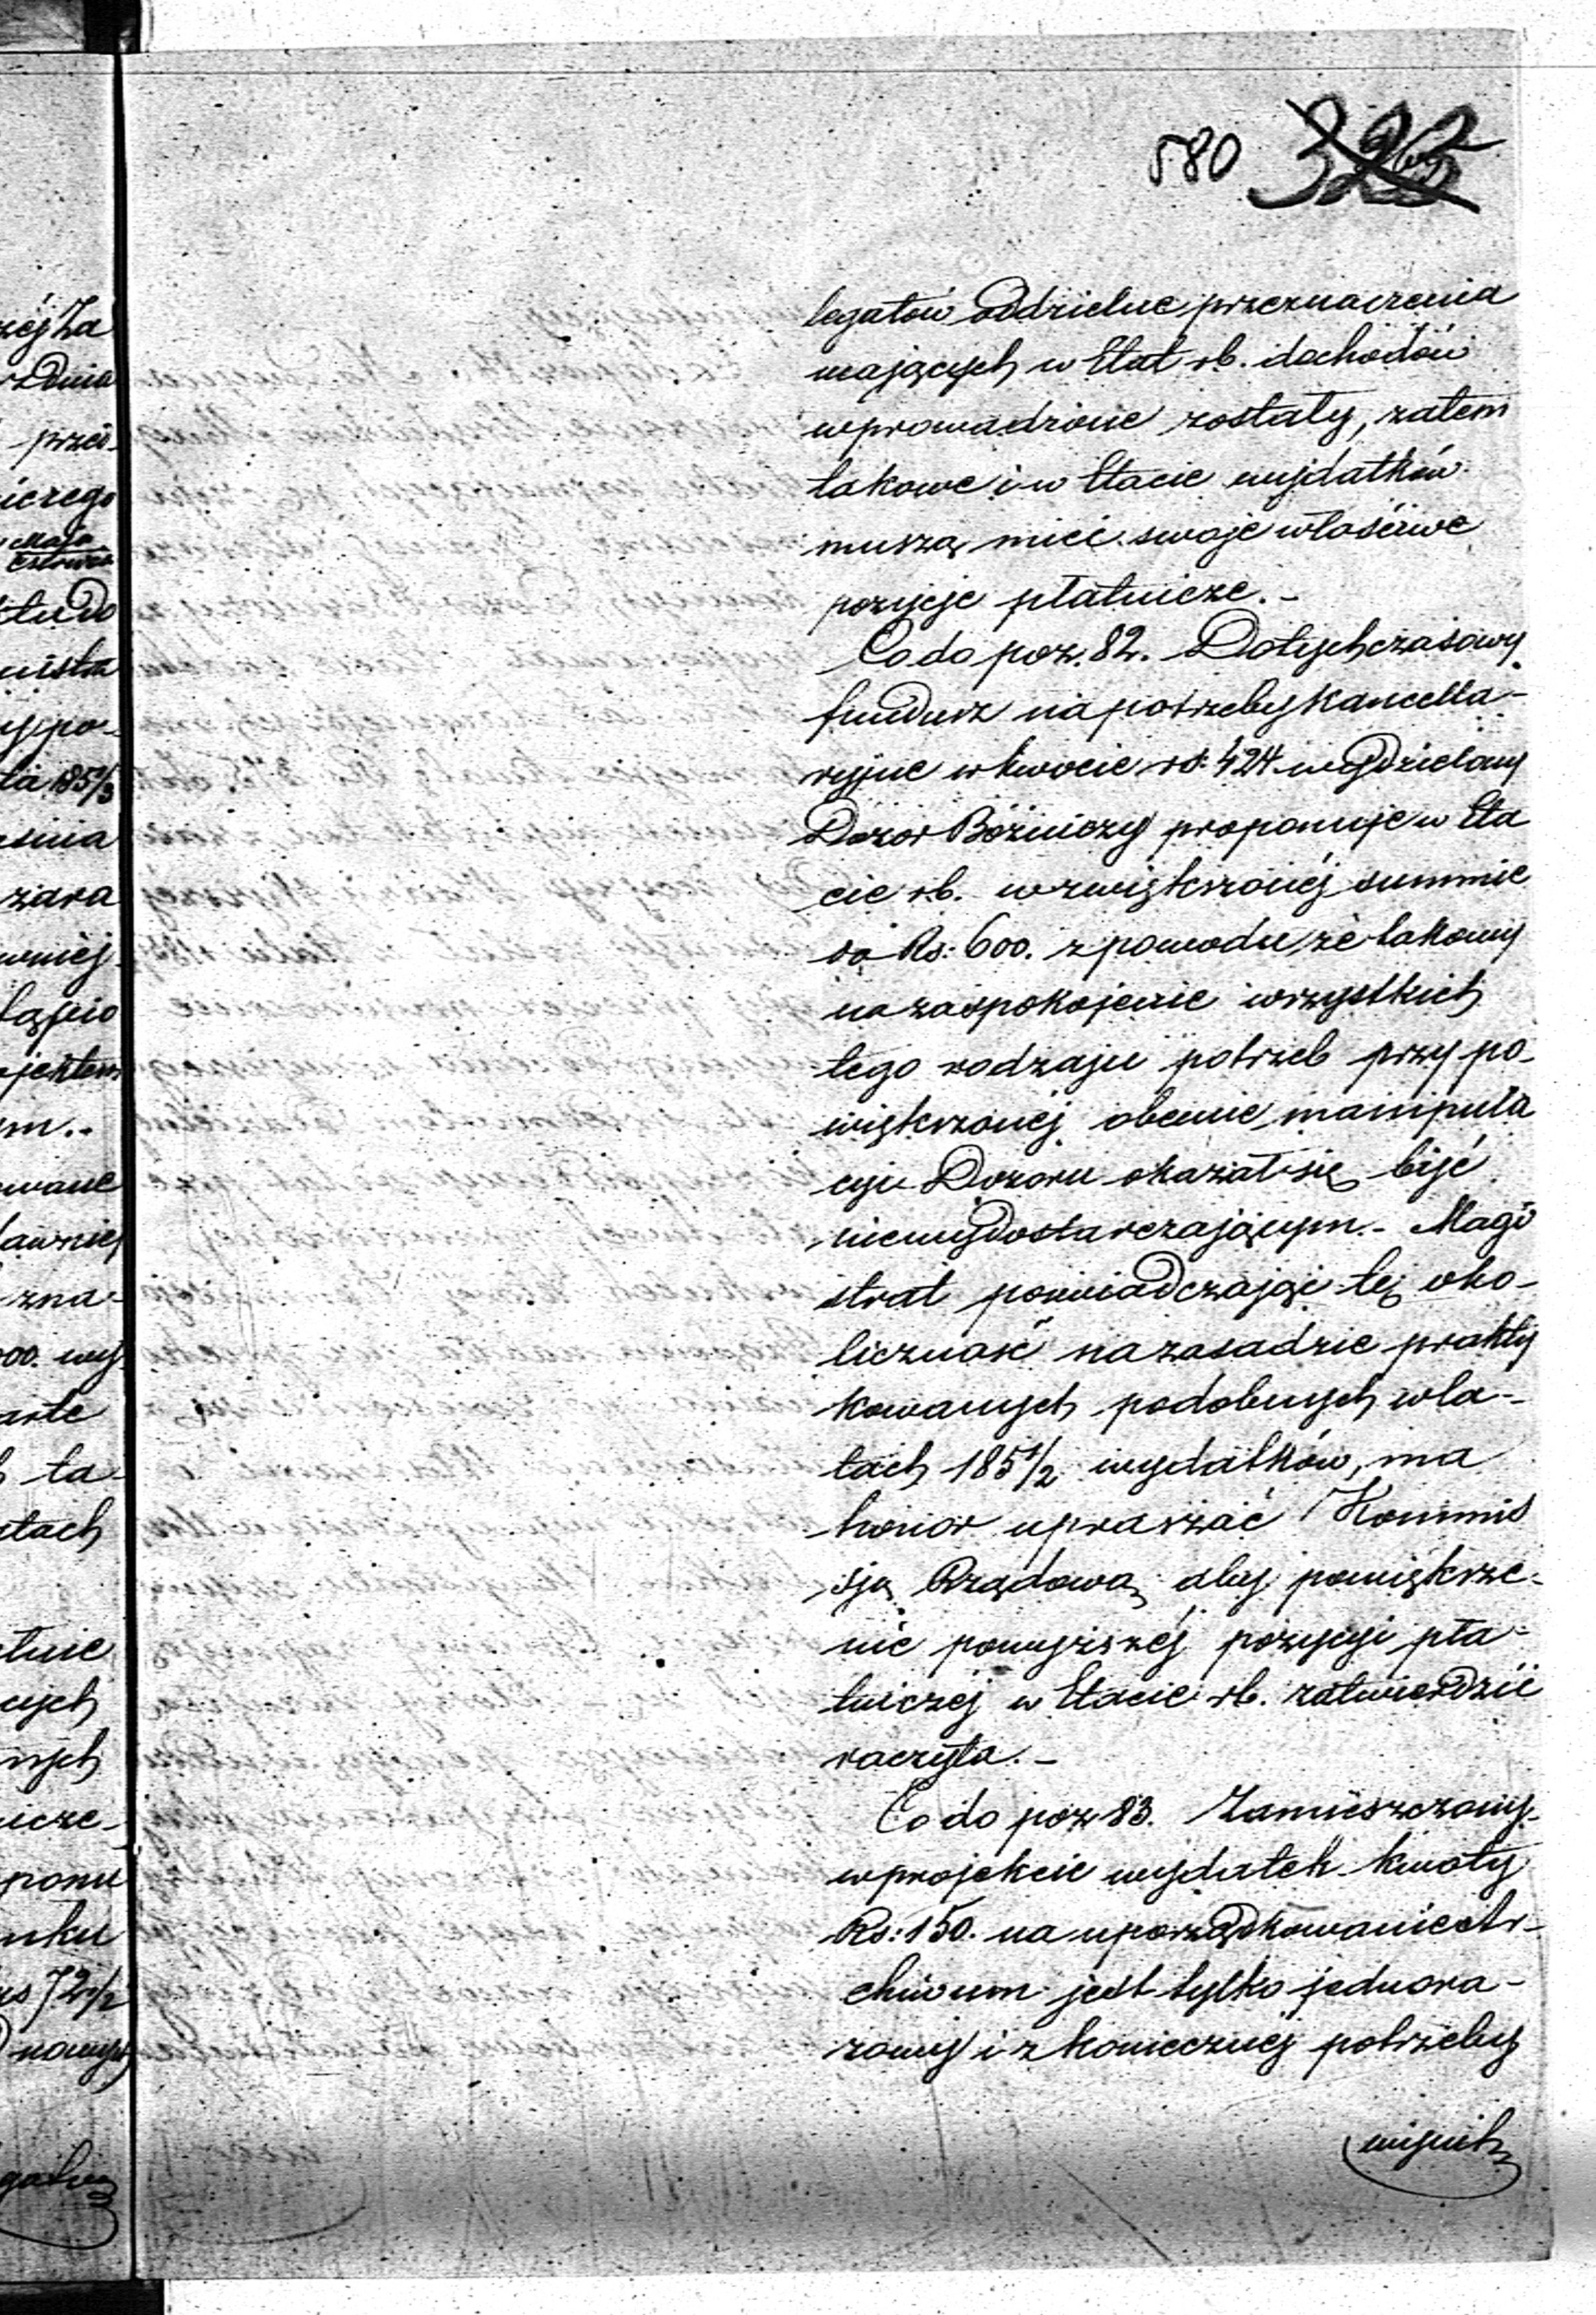 580 323
legatów oddzielne przeznaczenia
mających w Etat rb. dochodów
wprowadzone zostały, zatem
takowe i w Etacie wydatków
muszą mieć swoje właściwe
pozycje płatnicze. -
Co do poz. 82. Dotychczasowy
fundusz na potrzeby kancella-
ryjne w kwocie rs: 424 wydzielany
Dozór Bóżniczy proponuje w Eta
cie rb. w zwiększonéj summie
do Rs: 600. z powodu, że takowy
na zaspokojenie wszystkich
tego rodzaju potrzeb przy po-
większonéj obecnie manipula
cyi Dozoru okazał się być
niewydostarczającym. - Magi
strat poświadczając tę oko-
liczność na zasadzie prakty
kowanych podobnych w la-
tach 185 1/2 wydatków, ma
honor upraszać Kommis
sją Rządową aby powiększe-
nie powyższéj pozycyi pła-
tniczéj w Etacie rb. zatwierdzić
raczyła. -
Co do poz 83. Zamieszczony
w projekcie wydatek kwoty
Rs: 150. na uporządkowanie Ar-
chiwum jest tylko jednora-
zowy i z koniecznéj potrzeby
wynik
zéj Za
z Dnia
przez
iczego
tudo
ypo-
ta 185/3
zara
wniéj
jektem
ym. -
owane
dawniéj
zna-
00. wy
arte
ta-
tach
tnie
cych
nych
icze-
ponu
nku
72 1/2
nowych